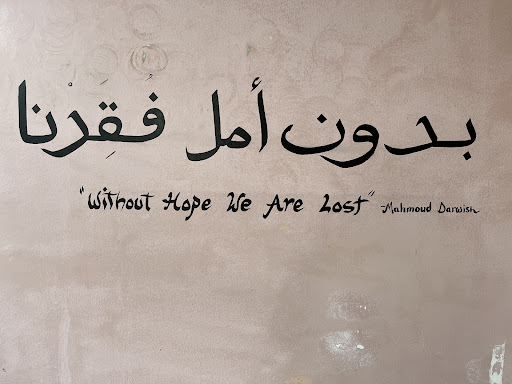 بدون أمل فُقِدْنا
"Without Hope We Are Lost" -Mahmoud Darwish